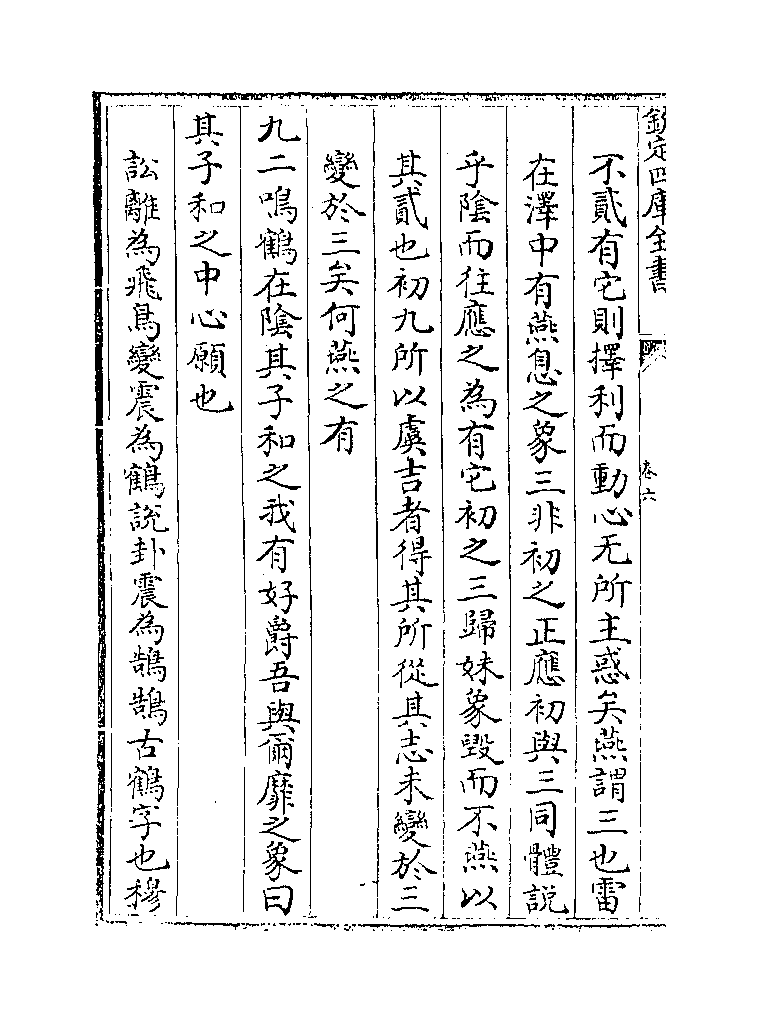 欽定四庫全書
卷六
不貳有它則擇利而動心无所主惑矣燕謂三也雷
在澤中有燕息之象三非初之正應初與三同體説
乎陰而往應之為有它初之三歸妹象毀而不燕以
其貳也初九所以虞吉者得其所從其志未變於三
變於三矣何燕之有
九二鳴鶴在陰其子和之我有好爵吾與爾靡之象曰
其子和之中心願也
訟離為飛鳥變震為鶴説卦震為鵠鵠古鶴字也穆